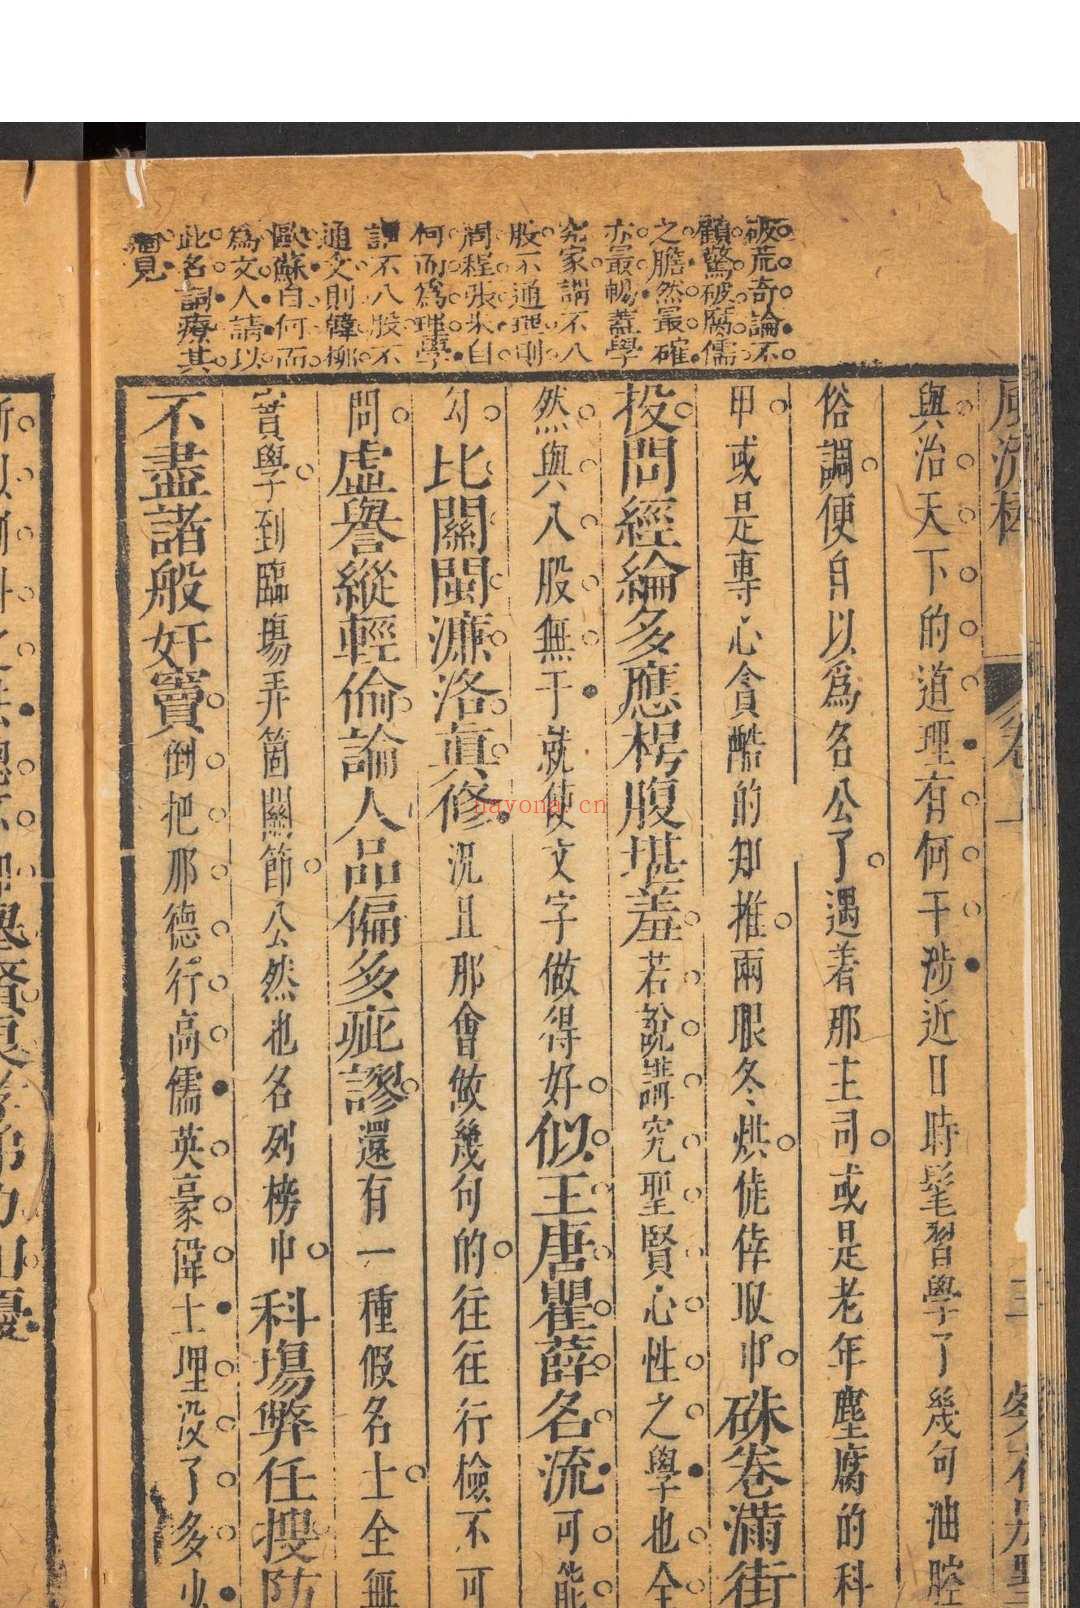 破荒奇論不
顧驚破腐儒
之膽然最確
亦最暢蓋學
究家謂不八
股不通理則
周程張朱自
何而為理學
謂不八股不
通文則韓柳
歐蘇自何而
為文人請以
此名詞療其
與治天下的道理有何干涉近日時髦習學了幾句油腔
俗調便自以爲名公了遇着那主司或是老年塵腐的科
甲或是專心貪酷的知推兩眼冬烘僥倖取中硃卷滿街
投問經綸多應枵腹堪羞若說講究聖賢心性之學也全
然與八股無干就使文字做得好似王唐瞿薛名流可能
勾比關閩濂洛眞修況且那會做幾句的往往行檢不可
問虛譽縱輕倫論人品偏多疵謬還有一種假名士全無
實學到臨場弄箇關節公然也名列榜中科場弊任搜防
不盡諸般奸竇倒把那德行高儒英豪偉士埋沒了多少
hayona.cn